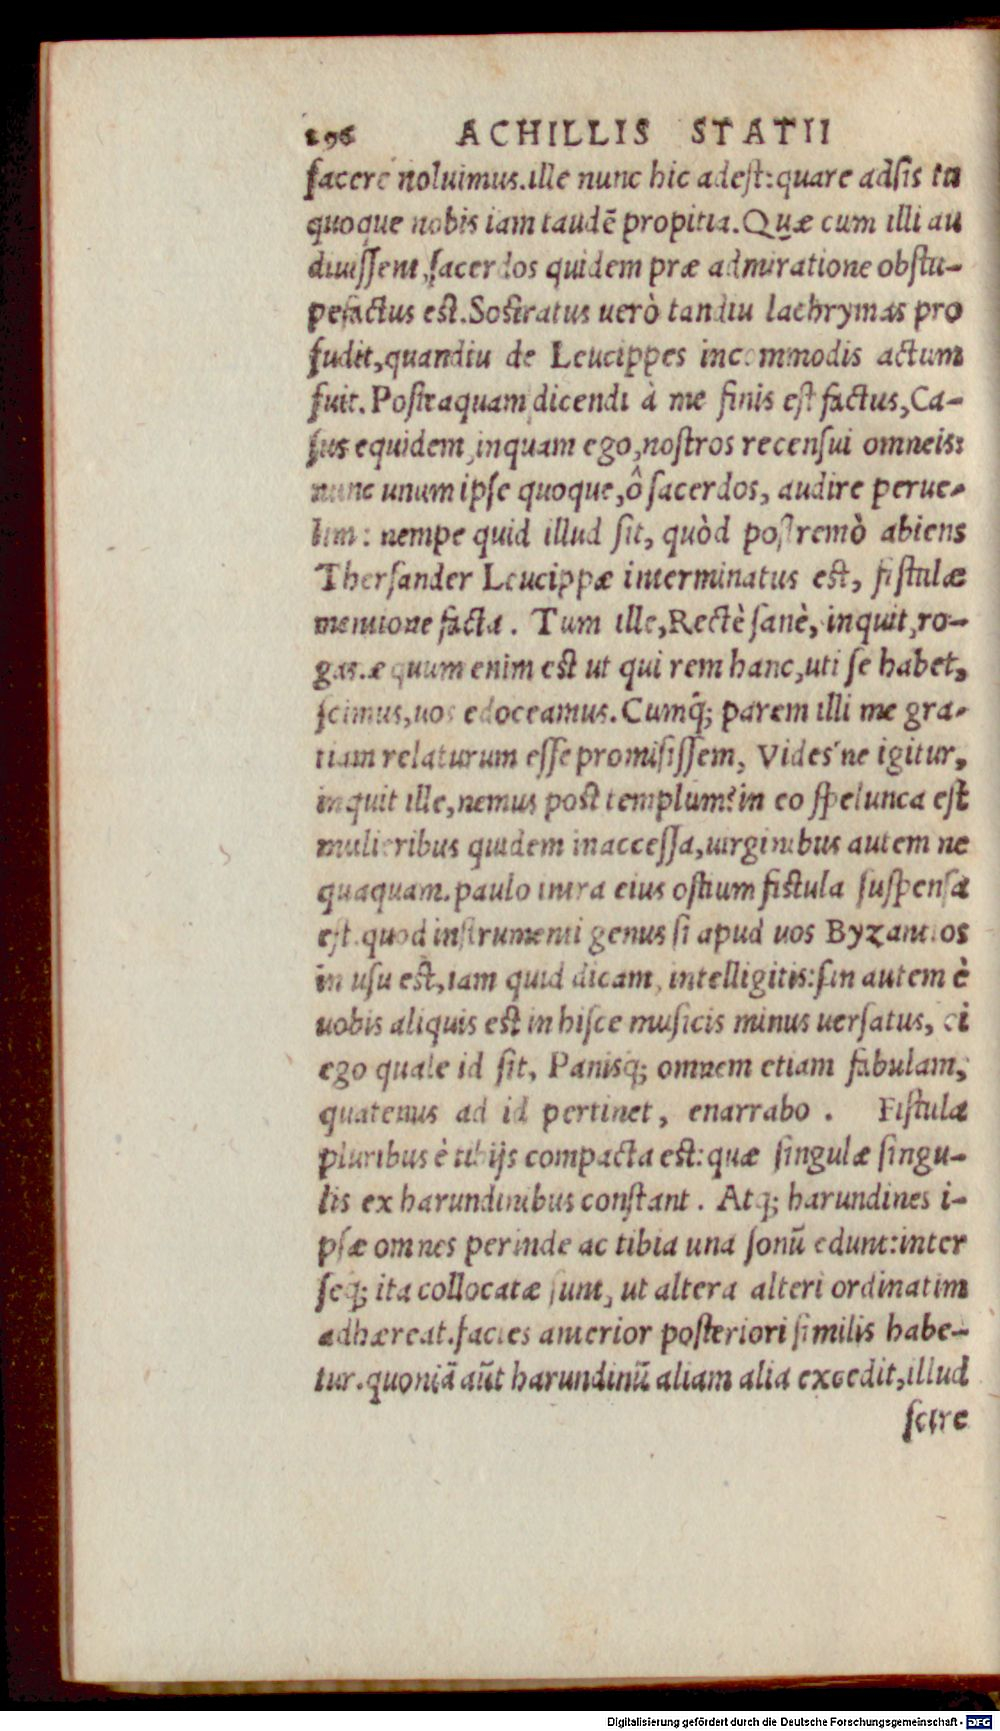 196 ACHILLIS STATII
facere noluimus.ille nunc hic adest:quare adsis tu
quoque nobis iam taudē propitia.Quæ cum illi au
diuissent,sacerdos quidem præ admiratione obstu-
pefactus est.Sostratus uerò tandiu lachrymas pro
fudit,quandiu de Leucippes incommodis actum
fuit. Posteaquam dicendi à me finis est factus,Ca-
sus equidem,inquam ego,nostros recensui omneis:
nunc unum ipse quoque,ô sacerdos, audire perue-
lim: nempe quid illud sit, quòd postremò abiens
Thersander Leucippæ interminatus est, fistulæ
mentione facta. Tum ille,Rectè sanè, inquit,ro-
gas.æquum enim est ut qui rem hanc,uti se habet,
scimus,uos edoceamus.Cumq̃; parem illi me gra-
tiam relaturum esse promisissem, Vides'ne igitur,
inquit ille,nemus post templum?in eo spelunca est
mulieribus quidem inaccessa,uirginibus autem ne
quaquam.paulo intra eius ostium fistula suspensa
est.quod instrumenti genus si apud uos Byzantios
in usu est,iam quid dicam, intelligitis:sin autem è
uobis aliquis est in hisce musicis minus uersatus, ei
ego quale id sit, Panisq; omnem etiam fabulam,
quatenus ad id pertinet, enarrabo. Fistula
pluribus è tibijs compacta est:quæ singulæ singu-
lis ex harundinibus constant. Atq; harundines i-
psæ omnes perinde ac tibia una sonũ edunt:inter
seq; ita collocatæ sunt, ut altera alteri ordinatim
adhæreat.facies anterior posteriori similis habe-
tur.quoniã aũt harundinũ aliam alia excedit,illud
scire
Digitalisierung gefördert durch die Deutsche Forschungsgemeinschaft - DFG